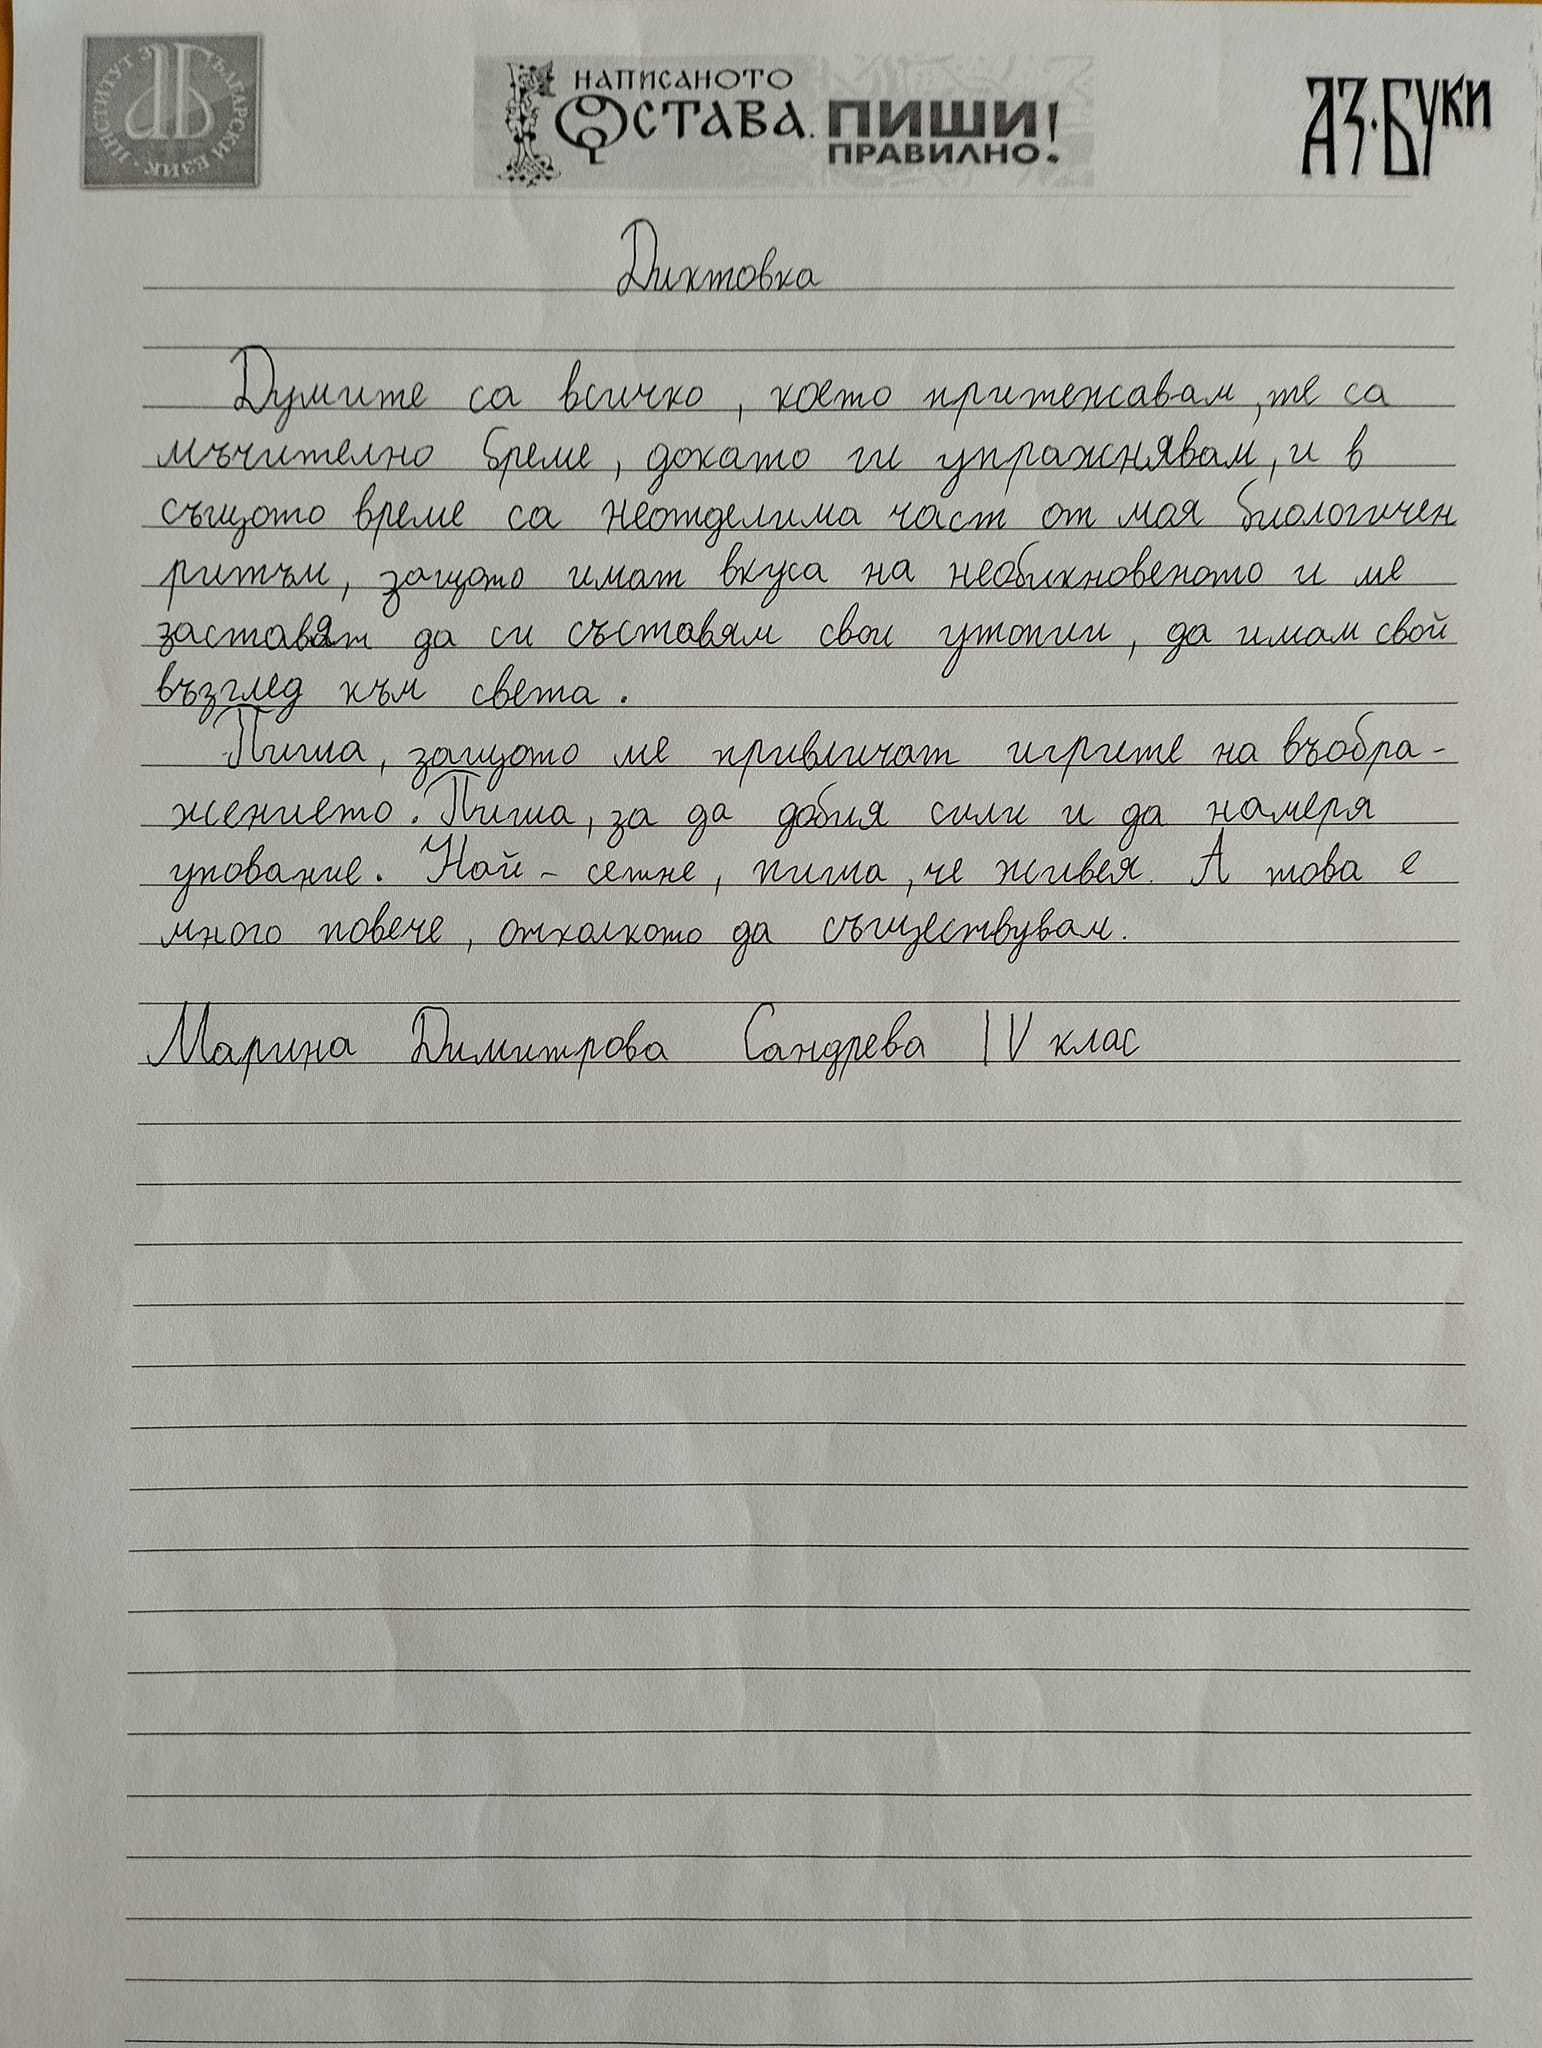 ИНСТИТУТ ЗА БЪЛГАРСКИ ЕЗИК
НАПИСАНОТО
ОСТАВА. ПИШИ
ПРАВИЛНО!
АЗ·БУКИ
Диктовка
Думите са всичко, което притежавам, те са
мъчително бреме, докато ги упражнявам, и в
същото време са неотделима част от мая биологичен
ритъм, защото имат вкуса на необикновеното и ме
заставят да си съставям свои утопии, да имам свой
възглед към света.
Пиша, защото ме привличат игрите на въобра-
жението. Пиша, за да добия сили и да намеря
упование. Най - сетне, пиша, че живея. А това е
много повече, отколкото да съществувам.
Марина Димитрова Сандрева IV клас